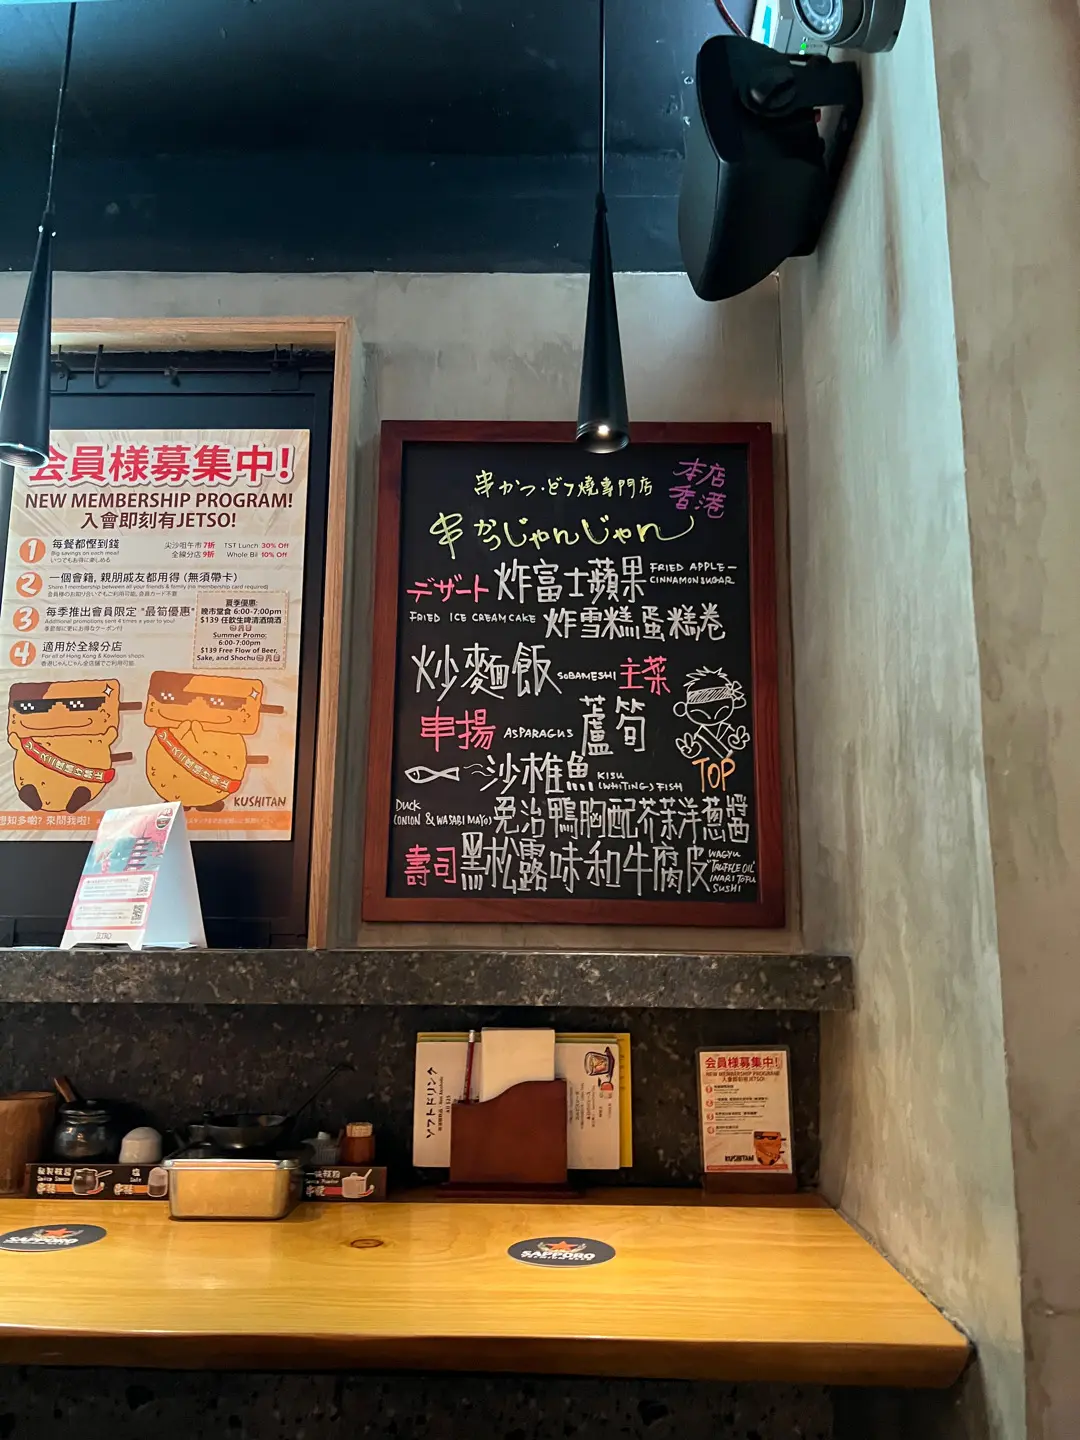 会員様募集中!
NEW MEMBERSHIP PROGRAM!
入會即刻有JETSO!
1 每餐都慳到錢
Big savings on each meal
いつでもお得に楽しめる
尖沙咀午市 7折 TST Lunch 30% Off
全線分店 9折 Whole Bill 10% Off
2 一個會籍, 親朋戚友都用得 (無須帶卡)
Share 1 membership between all your friends & family
3 每季推出會員限定 "最筍優惠"
Additional promotions sent 4 times a year to you!
4 適用於全線分店
For all of Hong Kong & Kowloon shops
夏季優惠:
晚市堂食 6:00-7:00pm
$139 任飲生啤清酒燒酒
Summer Promo:
6:00-7:00pm
$139 Free Flow of Beer,
Sake, and Shochu
ソース二度漬け禁止
ソース二度漬け禁止
KUSHITAN
想知多啲? 來問我啦!
本店
香港
串かつ・どて燒專門店
串かつじゃんじゃん
デザート 炸富士蘋果 FRIED APPLE-
CINNAMON SUGAR
FRIED ICE CREAM CAKE 炸雪糕蛋糕卷
炒麵飯 SOBAMESHI 主菜
串揚 ASPARAGUS 蘆筍
沙椎魚 KISU
(WHITING) FISH
TOP
DUCK
(ONION & WASABI MAYO) 免治鴨胸配芥茉洋蔥醬
壽司 黑松露味和牛腐皮 WAGYU
"TRUFFLE OIL"
INARI TOFU
SUSHI
ソフトドリンク
会員様募集中!
NEW MEMBERSHIP PROGRAM!
入會即刻有JETSO!
KUSHITAN
SAPPORO
SAPPORO